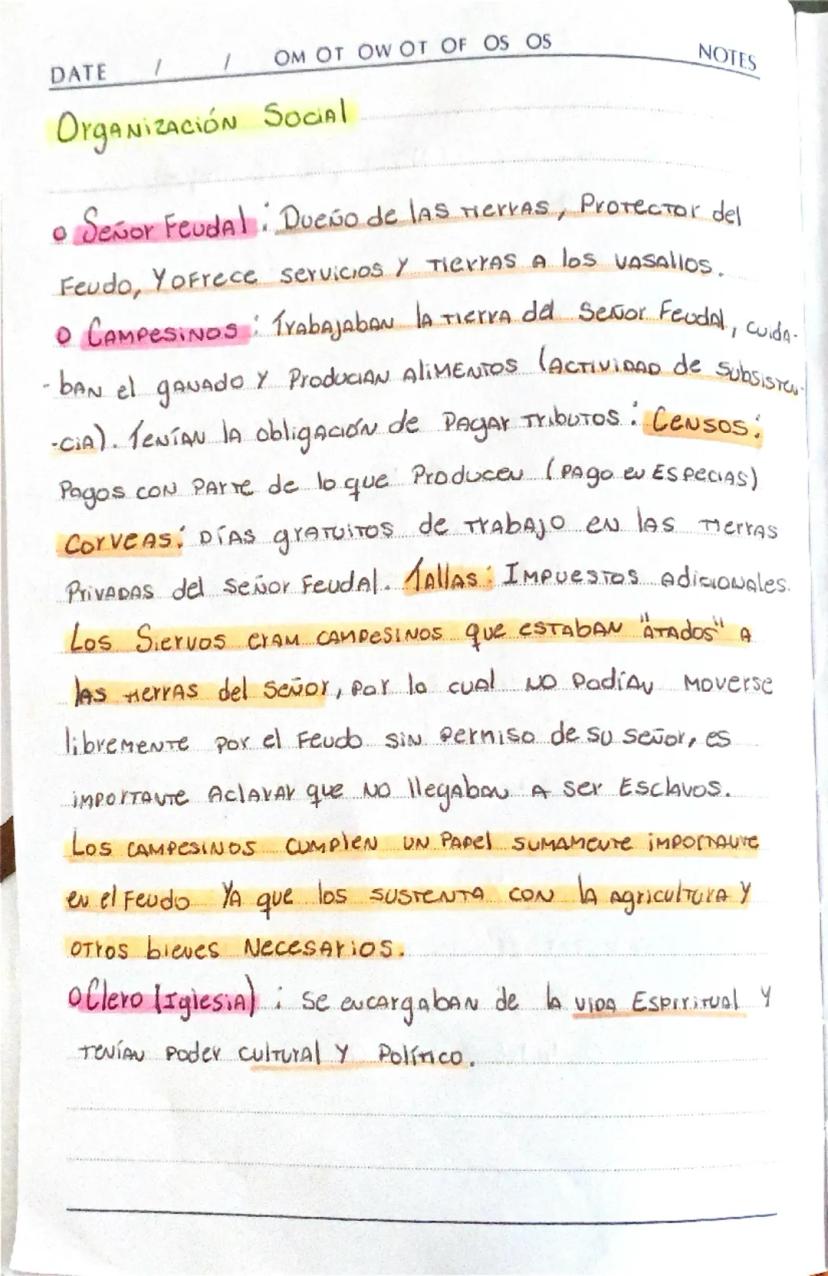 DATE / / OM OT OW OT OF OS OS NOTES
Organización Social
o Señor Feudal: Dueño de las tierras, Protector del
Feudo, y ofrece servicios y tierras a los vasallos.
o Campesinos: Trabajaban la tierra del Señor Feudal, cuida-
-ban el ganado y Producian alimentos (actividad de subsisten-
-cia). Tenían la obligación de pagar tributos: Censos:
Pagos con parte de lo que Producen (pago en especias)
Corveas: Días gratuitos de trabajo en las tierras
Privadas del señor feudal. Tallas: Impuestos adicionales.
Los Siervos eram campesinos que estaban "atados" a
las tierras del señor, por lo cual no podían moverse
libremente por el feudo sin permiso de su señor, es
importante aclarar que no llegaban a ser esclavos.
Los campesinos cumplen un papel sumamente importante
en el feudo ya que los sustenta con la agricultura y
otros bienes necesarios.
o Clero (Iglesia): Se encargaban de la vida espiritual y
tenían poder cultural y político.